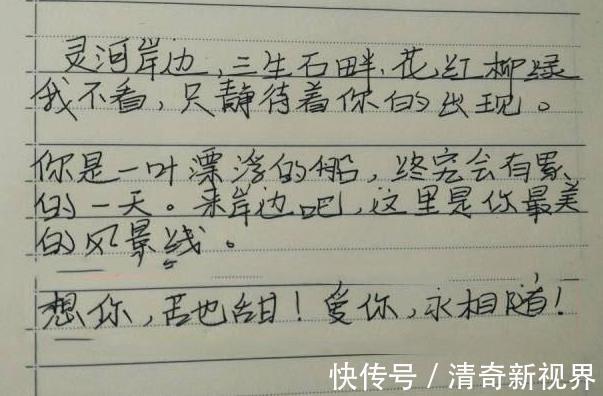 灵河岸边,三生石畔,花红柳绿
我不看,只静待着你的出现。
你是一叶漂浮的船,终究会有累
的一天。来岸边吧,这里是你最美
的风景线。
想你,苦也甜!爱你,永相随!
快传号/清奇新视界